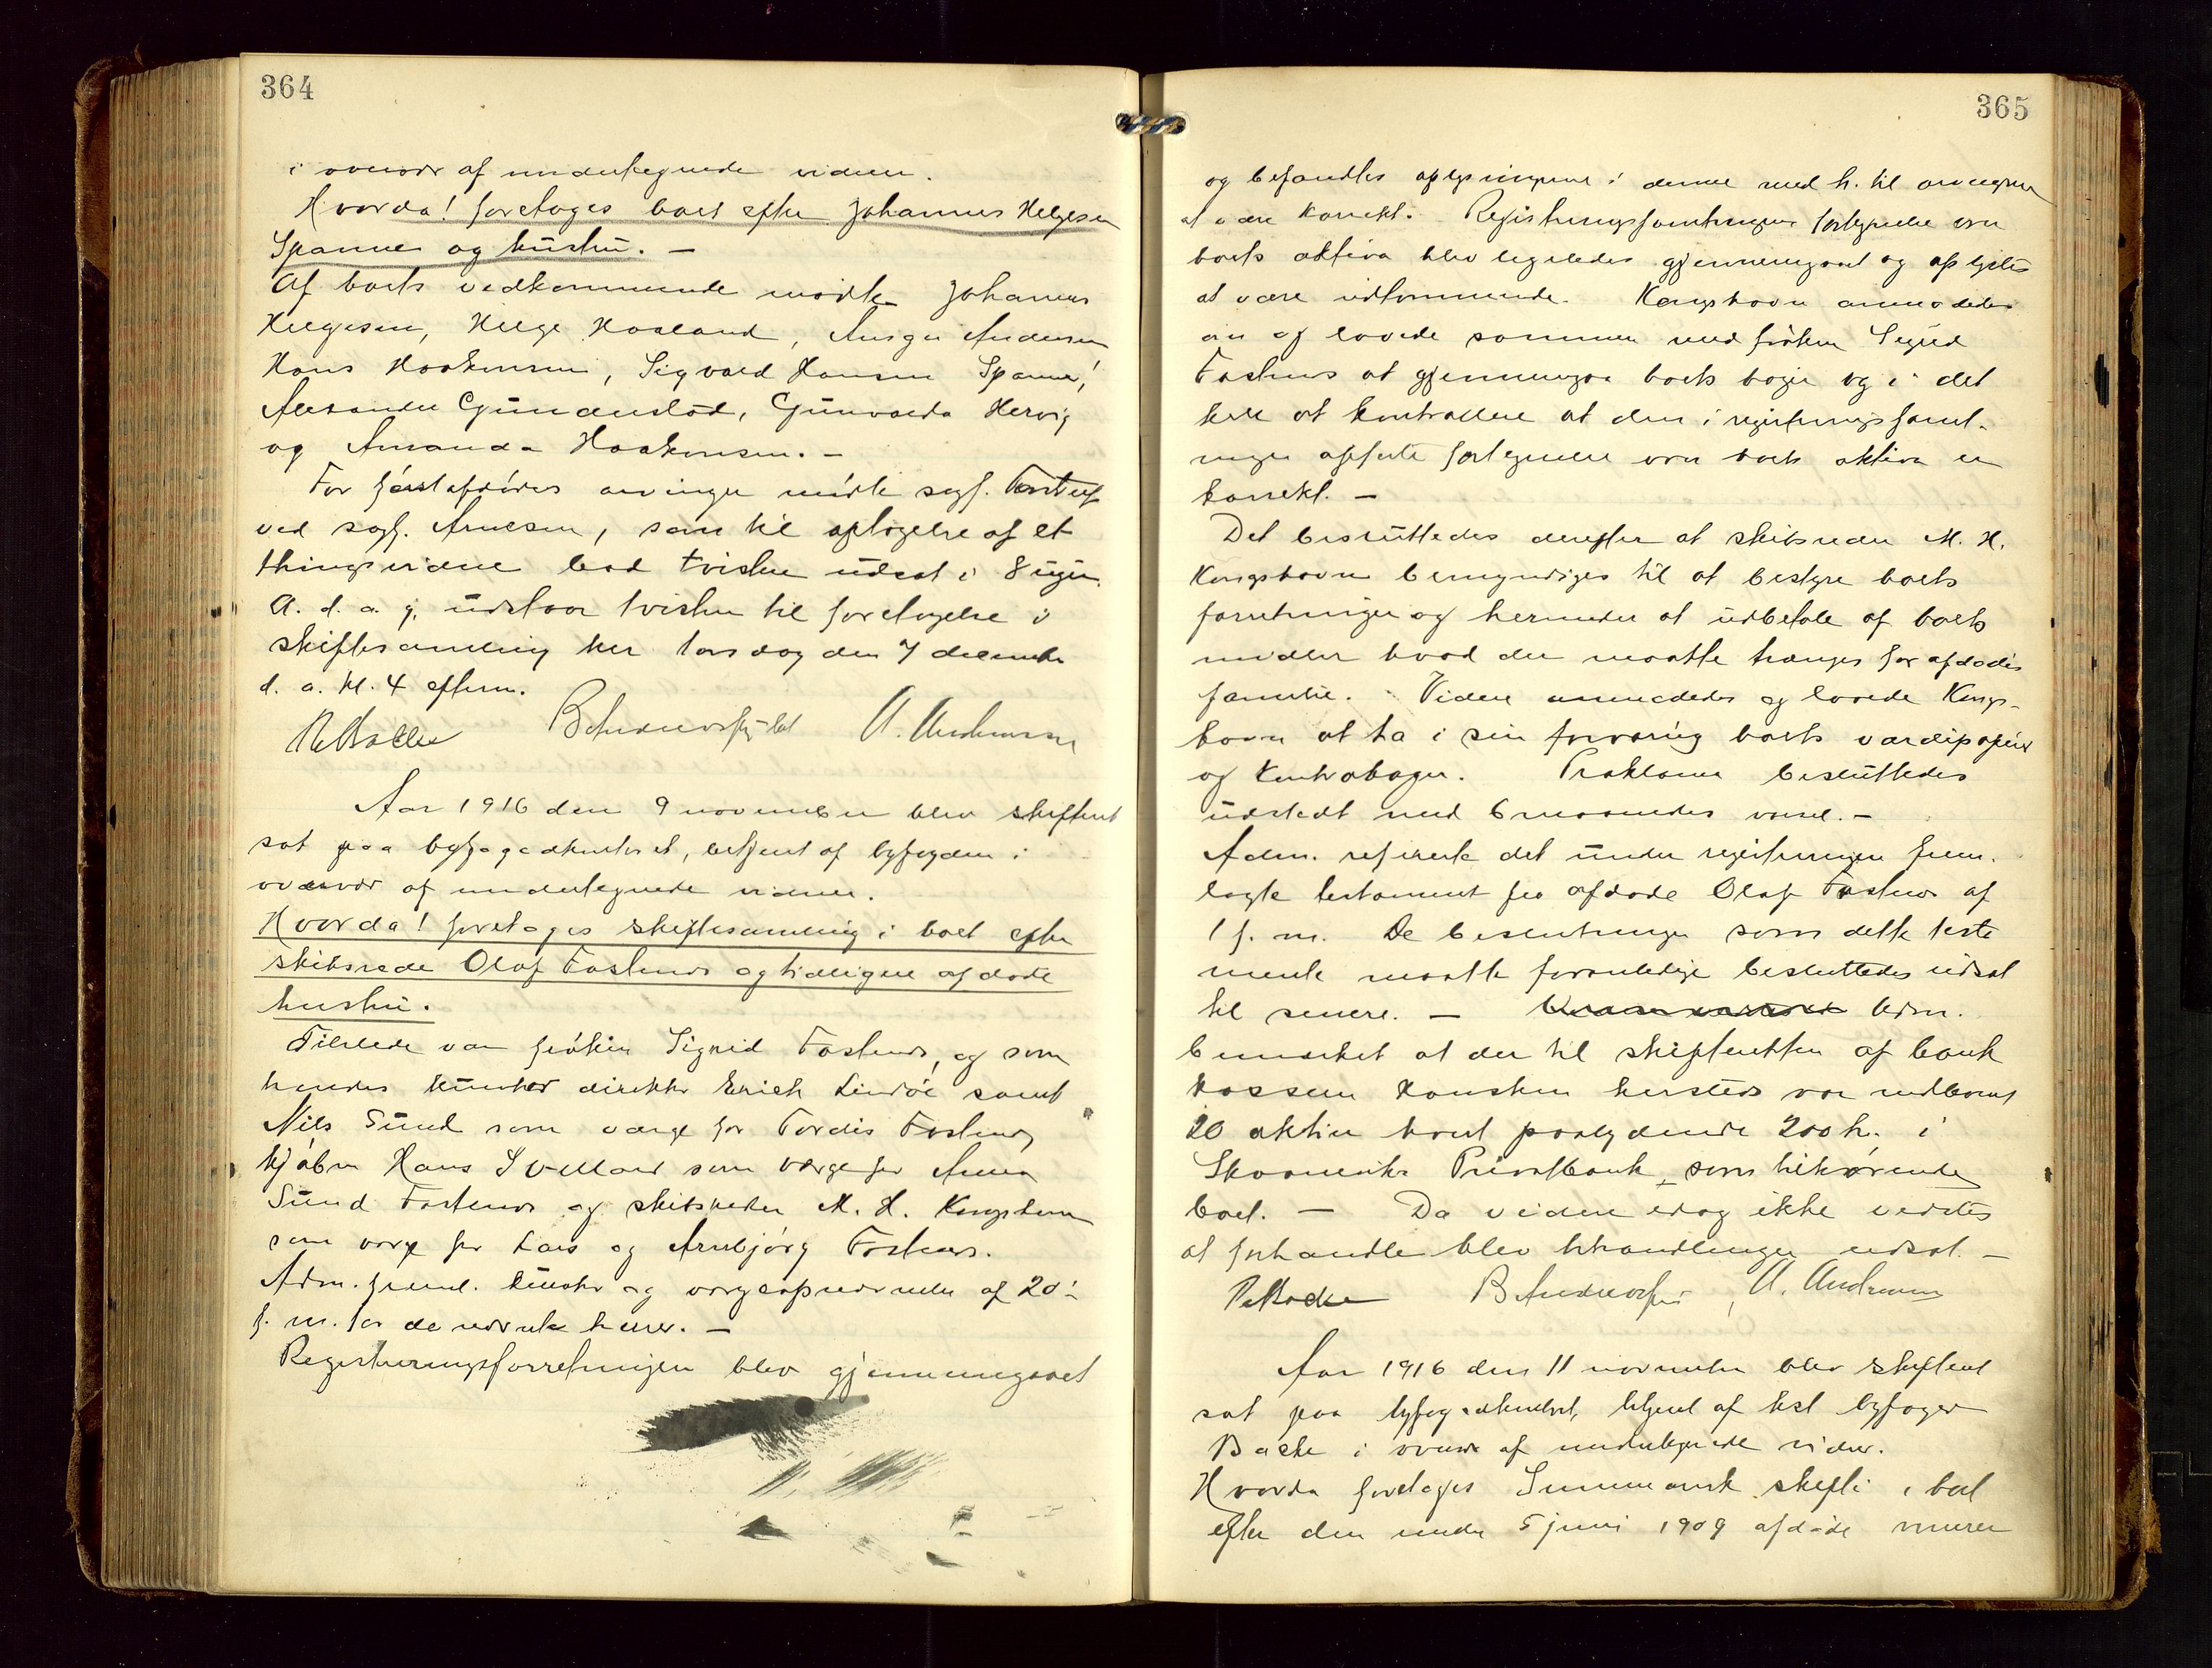 364
i overvær af undertegnede vidner.
Hvorda! foretoges boet efter Johannes Helgesen
Spanne og hustru. —
Af boets vedkommende mødte Johannes
Helgesen, Helge Haaland, Ansgar Andersen
Hans Haakensen, Sigvald Hansen Spanne,
Alexander Gunderslød, Gunvalda Hervig
og Amanda Haakonsen. —
For førstafdødes arvinger mødte sagf.
ved sagf. Arnesen, som til optagelse af et
thingsvidne bad tvisten udsat i 8 uger.
A. d. a. g. udstaar tvisten til foretagelse i
skiftesamling her torsdag den 7 december
d. a. kl. 4 efterm.
A. Andersen
Aar 1916 den 9 november blev skifteret
sat paa byfogedkontoret, betjent af byfogden i
overvær af undertegnede vidner.
Hvorda! foretoges skiftesamling i boet efter
skibsreder Olaf Fostenes og tidligere afdøde
hustru.
Tilstede var frøken Sigrid Fostenes, og som
hendes kurator direktør Erich Lindøe samt
Nils Sund som værge for Tordis Fostenes
kjøbm Hans Svelland som værge for Anna
Sund Fostenes og skibsreder M. H. Kongshavn
som værge for Lars og Arnbjørg Fostenes.
Adm. freml. kurator og værgeopnævnelse af 20-
f. m. for de nævnte herrer. —
Registreringsforretningen blev gjennemgaaet
365
og befandtes oplysningerne i denne med h. til arvingerne
at være korrekt. Registreringsforretningens fortegnelse over
boets aktiva blev ligeledes gjennemgaaet og oplystes
at være udtømmende. Kongshavn anmodedes
om og lovede sammen med frøken Sigrid
Fostenes at gjennemgaa boets bøger og i det
hele at kontrollere at den i registreringsforret-
ningen opførte fortegnelse over boets aktiva er
korrekt. —
Det besluttedes derefter at skibsreder M. H.
Kongshavn bemyndiges til at bestyre boets
forretninger og herunder at udbetale af boets
midler hvad der maatte trænges for afdødes
familie. Videre anmodedes og lovede Kongs-
havn at ta i sin forvaring boets værdipapirer
og kontrabøger. Proklama besluttedes
udstedt med 6 maaneders varsel. —
Adm. refererte det under registreringen frem-
lagte testament fra afdøde Olaf Fostenes af
1 f. m. De beslutninger som dette testa
mente maatte foranledige besluttedes udsat
til senere. — Adm.
bemærket at der til skifteretten af bank
kasserer Hansken hersteds var indleveret
20 aktier hvert paalydende 200 kr. i
Skaanevik Privatbank, som tilhørende
boet. — Da videre idag ikke vidstes
at forhandle blev behandlingen udsat. —
A. Andersen
Aar 1916 den 11 november blev skifteret
sat paa byfogedkontoret, betjent af kst byfoged
Bache i overvær af undertegnede vidner.
Hvorda foretoges Summarisk skifte i boet
efter den under 5 juni 1909 afdøde murer